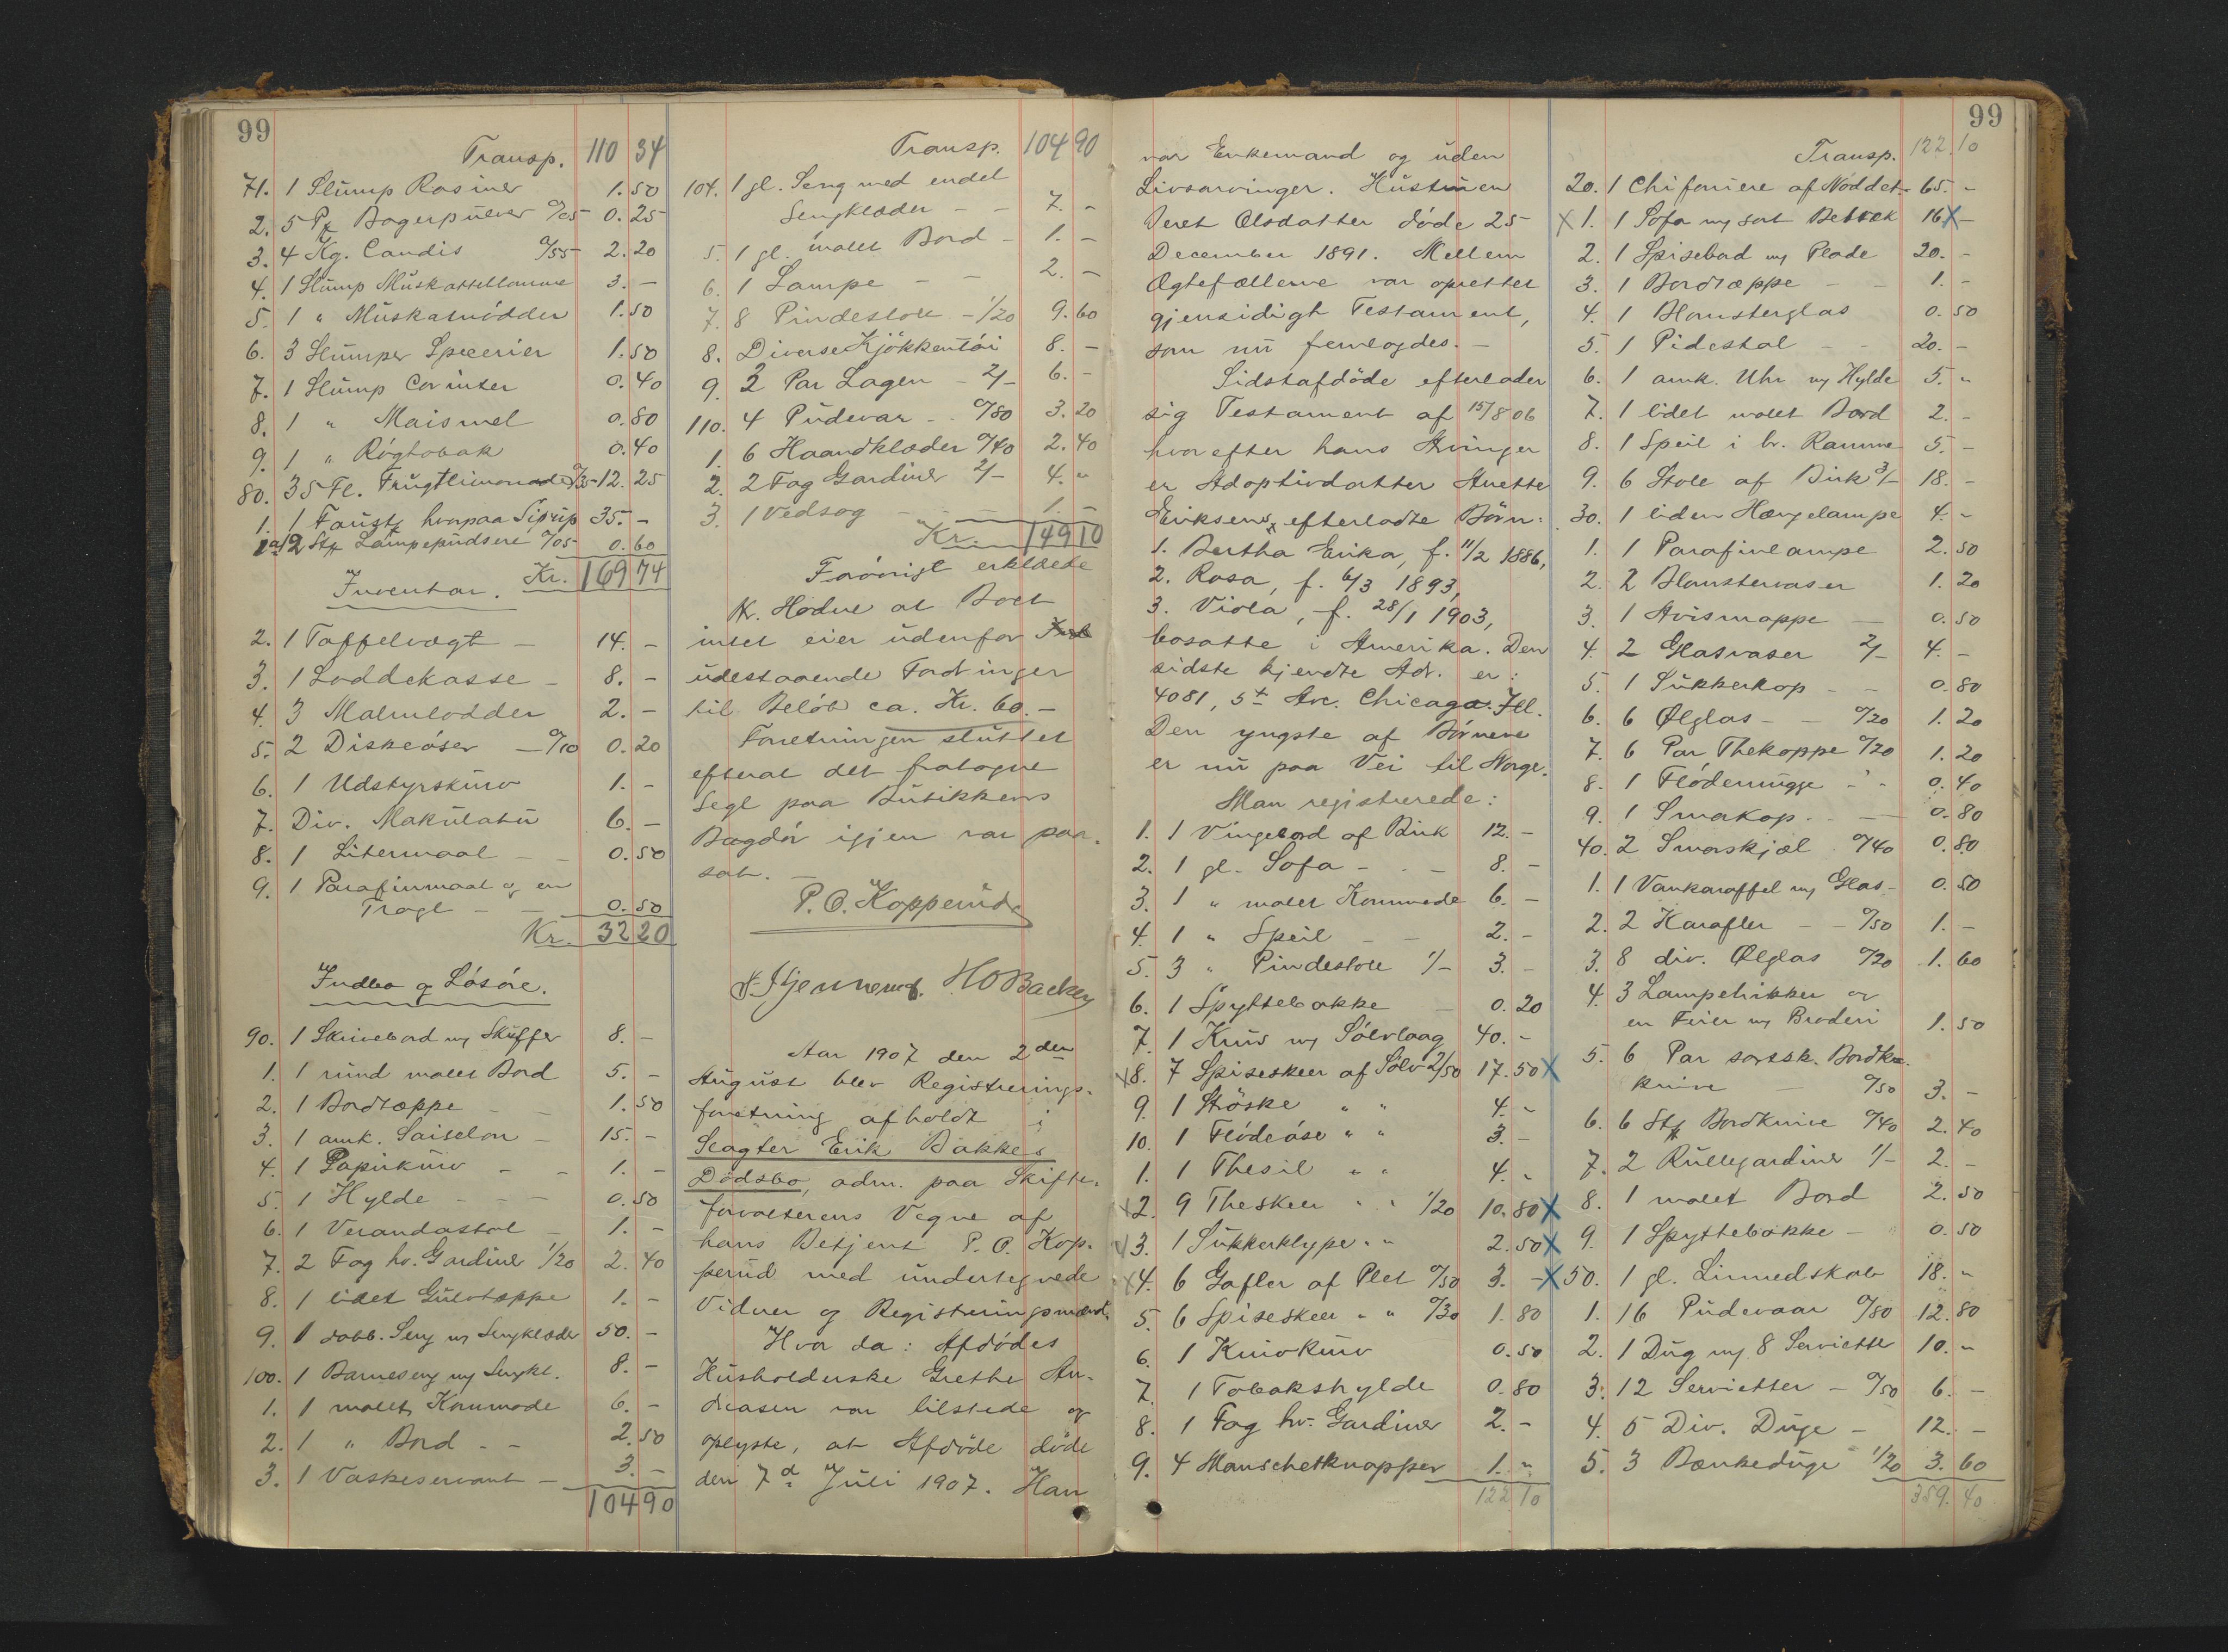 99
Transp. 110 34
71. 1 Slump Rosiner 1.50
2. 5 Pk Bagerpulver 0/05 0.25
3. 4 Kg. Candis 0/55 2.20
4. 1 Slump Muskatblomme 3.-
5. 1 " Muskatnødder 1.50
6. 3 Slumper Specerier 1.50
7. 1 Slump Corinter 0.40
8. 1 " Maismel 0.80
9. 1 " Røgtobak 0.40
80. 35 Fl. Frugtlimonade 0/35 12.25
1. 1 Fustg hvorpaa Sirup 35.-
1a 12 Stk Lampepudsere 0/05 0.60
Kr. 169 74
Inventar.
2. 1 Taffelvægt - 14.-
3. 1 Loddekasse - 8.-
4. 3 Malmlodder 2.-
5. 2 Diskeøser - 0/10 0.20
6. 1 Udstyrskurv 1.-
7. Div. Makulatur 6.-
8. 1 Litermaal - - 0.50
9. 1 Parafinmaal og en
Tragt - - 0.50
Kr. 32 20
Indbo og Løsøre.
90. 1 Skrivebord m/ Skuffer 8.-
1. 1 rund malet Bord 5.-
2. 1 Bordtæppe - - 1.50
3. 1 amk. Saiselon - 15.-
4. 1 Papirkurv - - 1.-
5. 1 Hylde - - - 0.50
6. 1 Verandastol - 1.-
7. 2 Fag hv. Gardiner 1/20 2.40
8. 1 lidet Gulvtæppe 1.-
9. 1 dobb. Seng m/ Sengklæder 50.-
100. 1 Barneseng m/ Sengkl. 8.-
1. 1 malet Kommode 6.-
2. 1 " Bord - - 2.50
3. 1 Vaskeservant - 3.-
104 90
Transp. 104 90
104. 1 gl. Seng med endel
Sengklæder - - 7.-
5. 1 gl. malet Bord - 1.-
6. 1 Lampe - - 2.-
7. 8 Pindestole - 1/20 9.60
8. Diverse Kjøkkentøi 8.-
9. 2 Par Lagen - 2/- 6.-
110. 4 Pudevar - 0/80 3.20
1. 6 Haandklæder 0/40 2.40
2. 2 Fag Gardiner 2/- 4."
3. 1 Vedsag - - - 1.-
Kr. 149 10
Forøvrigt erklærte
K. Hodne at Boet
intet eier udenfor
udestaaende Fordringer
til Beløb ca. Kr. 60.-
Forretningen sluttet
efterat det fratagne
Segl paa Butikkens
Bagdør igjen var paa-
sat. -
P.O. Kopperud
H O Backer
Aar 1907 den 2den
August blev Registrerings-
forretning afholdt i
Slagter Erik Bakkes
Dødsbo, adm. paa Skifte-
forvalterens Vegne af
hans Betjent P.O. Kop-
perud med undertegnede
Vidner og Registreringsmænd.
Hvor da: Afdødes
Husholderske Grethe An-
dreasen var tilstede og
oplyste, at Afdøde døde
den 7d Juli 1907. Han
99
var Enkemand og uden
Livsarvinger. Hustruen
Beret Olsdatter døde 25
December 1891. Mellem
Ægtefællerne var oprettet
gjensidigt Testament,
som nu fremlagdes. -
Sidstafdøde efterlader
sig Testament af 15/8 06
hvorefter hans Arvinger
er Adoptivdatter Anette
Eriksens efterladte Børn:
1. Bertha Erika, f. 11/2 1886,
2. Rosa, f. 6/3 1893,
3. Viola, f. 28/1 1903,
bosatte i Amerika. Den
sidste kjendte Adr. er:
4081, 5t Ave. Chicago. Ill.
Den yngste af Børnene
er nu paa Vei til Norge.
Man registrerede:
1. 1 Vingebord af Birk 12.-
2. 1 gl. Sofa - - - 8.-
3. 1 " malet Kommode 6.-
4. 1 " Speil - - 2.-
5. 3 " Pindestole 1/- 3.-
6. 1 Spyttebakke - 0.20
7. 1 Krus m/ Sølvlaag 40.-
x8. 7 Spiseskeer af Sølv 2/50 17.50 X
9. 1 Strøske " " 4.-
10. 1 Flødeøse " " 3.-
1. 1 Thesil " " 4.-
x2. 9 Theskeer " " 1/20 10.80 X
x3. 1 Sukkerklype " " 2.50 X
x4. 6 Gafler af Plet 0/50 3.- X
5. 6 Spiseskeer " " 0/30 1.80
6. 1 Knivkurv 0.50
7. 1 Tobakshylde 0.80
8. 1 Fag hv. Gardiner 2.-
9. 4 Manschetknapper 1."
122 10
99
Transp. 122.10
20. 1 Chifoniere af Nøddet. 65.-
X 1. 1 Sofa m/ sort Betræk 16 X -
2. 1 Spisebord m/ Plade 20.-
3. 1 Bordtæppe - - 1.-
4. 1 Blomsterglas 0.50
5. 1 Pidestal - - 20.-
6. 1 amk. Uhr m/ Hylde 5."
7. 1 lidet malet Bord 2.-
8. 1 Speil i br. Ramme 5.-
9. 6 Stole af Birk 3/- 18.-
30. 1 liden Hængelampe 4.-
1. 1 Parafinlampe 2.50
2. 2 Blomstervaser 1.20
3. 1 Avismappe - 0.50
4. 2 Glasvaser 2/- 4.-
5. 1 Sukkerkop - - 0.80
6. 6 Ølglas - - 0/20 1.20
7. 6 Par Thekopper 0/20 1.20
8. 1 Flødemugge - - 0.40
9. 1 Smørkop - - 0.80
40. 2 Smørskjæl 0/40 0.80
1. 1 Vankaraffel m/ Glas - 0.50
2. 2 Karafler - - 0/50 1.-
3. 8 div. Ølglas 0/20 1.60
4. 3 Lampebrikker og
en Feier m/ Broderi 1.50
5. 6 Par sortsk. Bord
knive - 0/50 3.-
6. 6 Stk Bordknive 0/40 2.40
7. 2 Rullegardiner 1/- 2.-
8. 1 malet Bord 2.50
9. 1 Spyttebakke - 0.50
50. 1 gl. Linnedskab 18."
1. 16 Pudevaar 0/80 12.80
2. 1 Dug m/ 8 Servietter 10."
3. 12 Servietter - 0/50 6.-
4. 5 Div. Duge - 12.-
5. 3 Bænkeduge 1/20 3.60
359.40